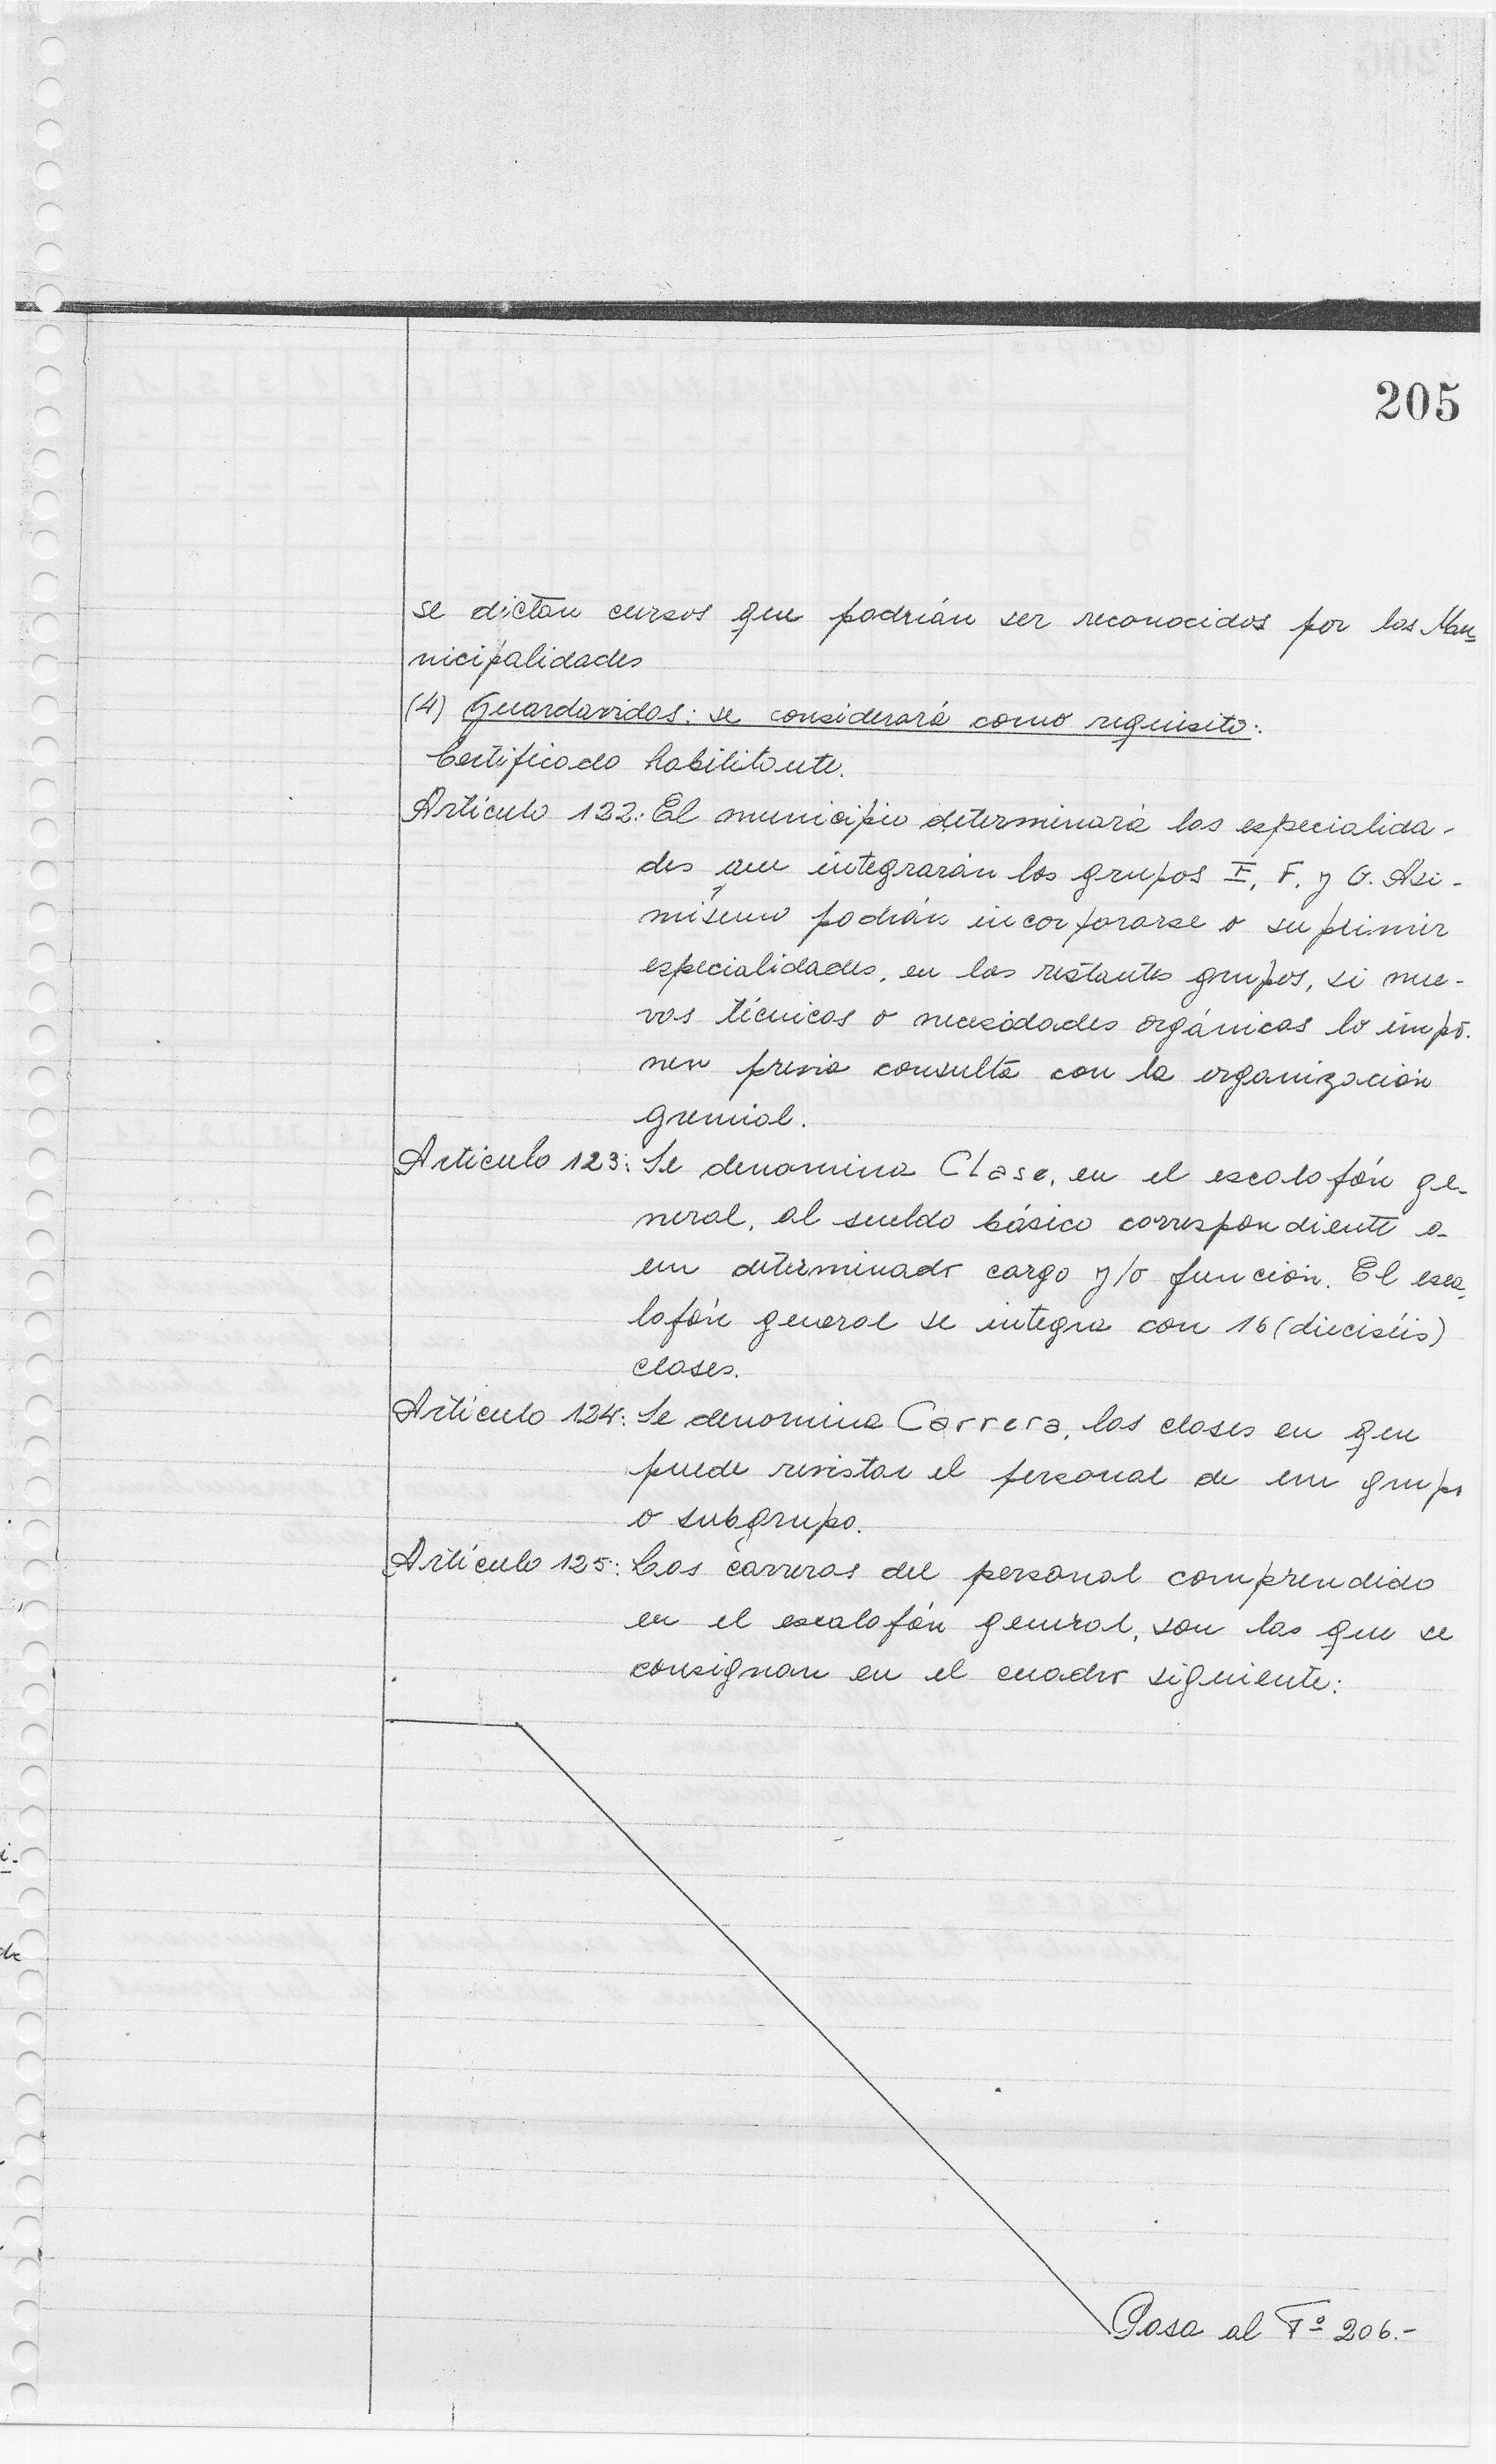 205
se dictan cursos que podrían ser reconocidos por las Mu
nicipalidades
(4) Guardavidas: se considerará como requisito:
Certificado habilitante.
Artículo 122: El municipio determinará las especialida-
des que integrarán los grupos E, F. y G. Asi-
mismo podrán incorporarse o suprimir
especialidades, en los restantes grupos, si nue-
vas técnicas o necesidades orgánicas lo impo-
nen previa consulta con la organización
gremial.
Artículo 123: Se denomina Clase, en el escalafón ge-
neral, al sueldo básico correspondiente a
un determinado cargo y/o función. El esca
lafón general se integra con 16 (dieciséis)
clases.
Artículo 124: Se denomina Carrera, las clases en que
puede revistar el personal de un grupo
o subgrupo.
Artículo 125: Las carreras del personal comprendido
en el escalafón general, son las que se
consignan en el cuadro siguiente:
Pasa al Fº 206.-